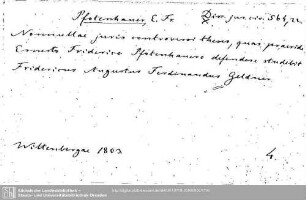 Pfotenhauer, E. Fr. Diss. jur. civ. 561,22
Nonnullae juris controversi theses, quas praeside
Ernesto Friderico Pfotenhauero defendere studebit
Fridericus Augustus Ferdinandus Geldner
Wittenbergae 1803 4.
Sächsische Landesbibliothek -
Staats- und Universitätsbibliothek Dresden